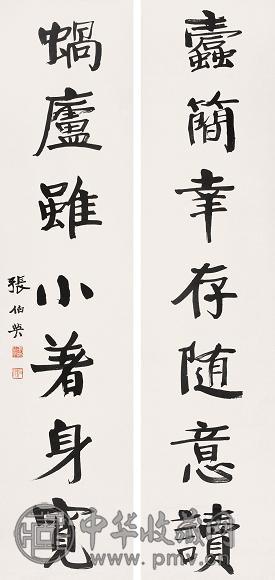 蠹簡幸存随意讀
蝸廬雖小著身寬
張伯英
中华收藏网
www.pmv.cn